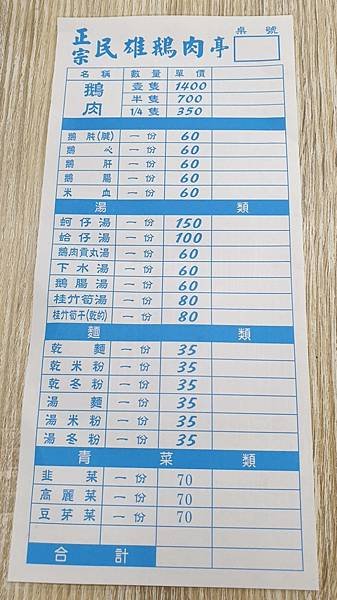 正宗 民雄鵝肉亭 桌號
名稱 數量 單價
鵝肉 壹隻 1400
半隻 700
1/4隻 350
鵝胘(腱) 一份 60
鵝心 一份 60
鵝肝 一份 60
鵝腸 一份 60
米血 一份 60
湯類
蚵仔湯 一份 150
蛤仔湯 一份 100
鵝肉貢丸湯 一份 60
下水湯 一份 60
鵝腸湯 一份 60
桂竹筍湯 一份 80
桂竹筍干(乾的) 一份 80
麵類
乾麵 一份 35
乾米粉 一份 35
乾冬粉 一份 35
湯麵 一份 35
湯米粉 一份 35
湯冬粉 一份 35
青菜類
韭菜 一份 70
高麗菜 一份 70
豆芽菜 一份 70
合計